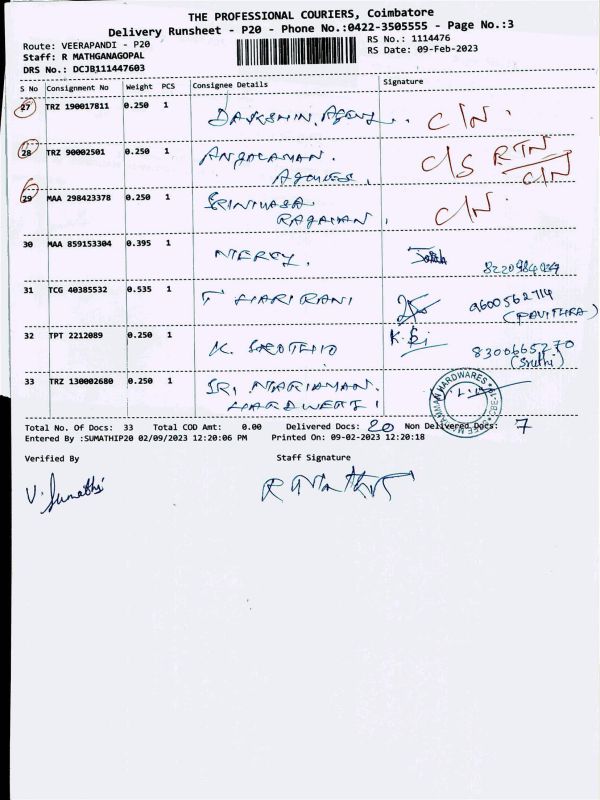 THE PROFESSIONAL COURIERS, Coimbatore
Delivery Runsheet - P20 - Phone No.:0422-3505555 - Page No.:3
Route: VEERAPANDI - P20
RS No.: 1114476
Staff: R MATHGANAGOPAL
RS Date: 09-Feb-2023
DRS No.: DCJB111447603
S No Consignment No Weight PCS Consignee Details Signature
27 TRZ 190017811 0.250 1 C/N.
28 TRZ 90002501 0.250 1 ANGALAMAN. C/S RTN
C/N
29 MAA 298423378 0.250 1 SRINIVASA C/N.
30 MAA 859153304 0.395 1 MERCY.
31 TCG 40385532 0.535 1 T HARI RANI 9600562714
(PAVITHRA)
32 TPT 2212089 0.250 1 K. K. Sri 8300665270
(Sruthi)
33 TRZ 130002680 0.250 1 SRI MARIAMAN.
Total No. Of Docs: 33 Total COD Amt: 0.00 Delivered Docs: 20 Non Delivered Docs: 7
Entered By :SUMATHIP20 02/09/2023 12:20:06 PM Printed On: 09-02-2023 12:20:18
Verified By Staff Signature
V. Sumathi